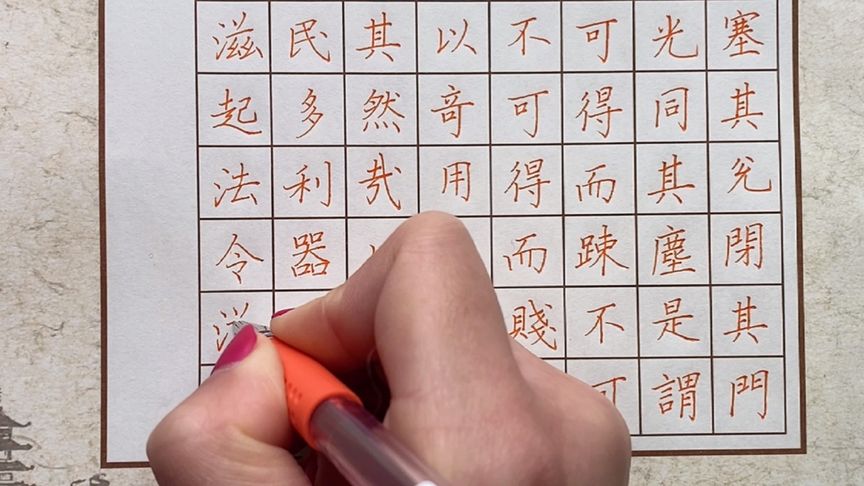 塞其兊閉其門
光同其塵是謂
可得而踈不可
不可得而賤
以竒用
其然哉
民多利器
滋起法令